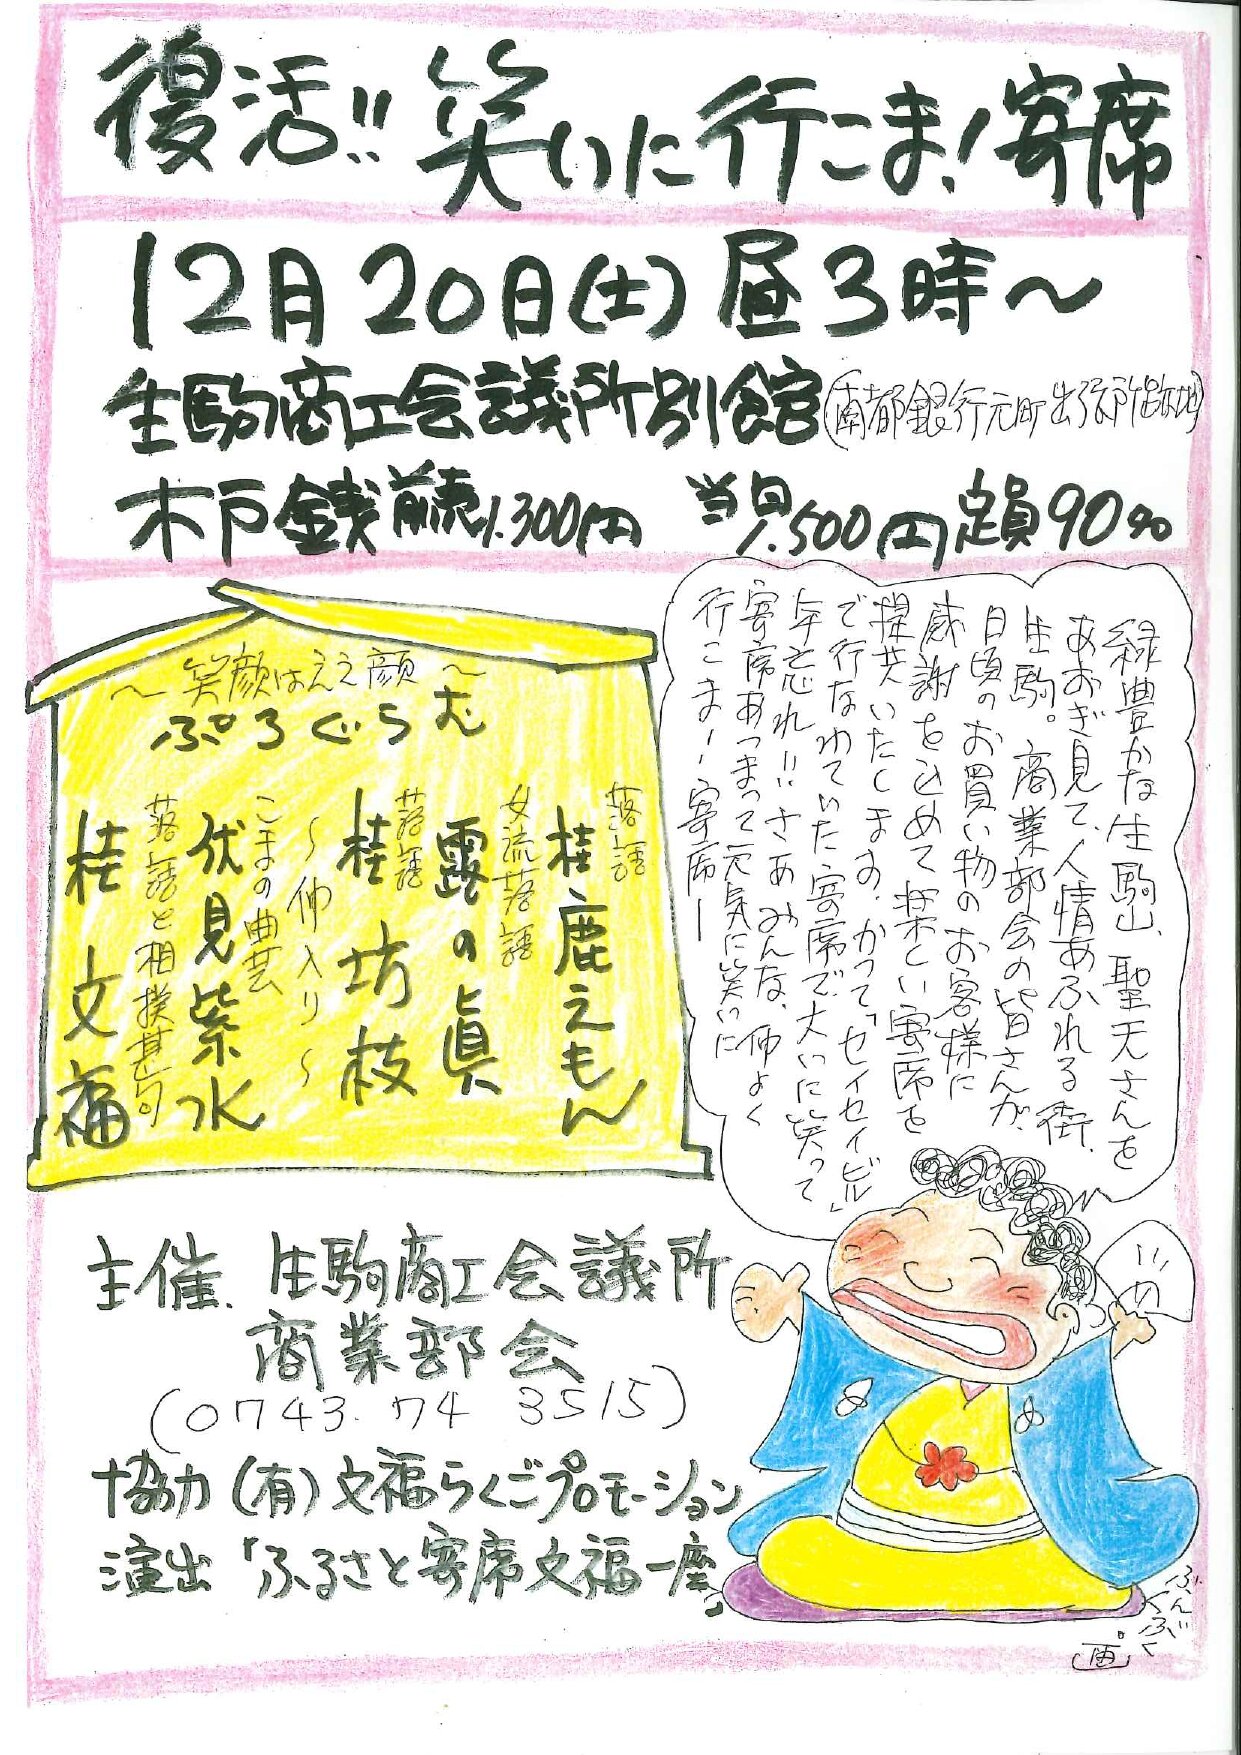 復活!! 笑いに行こま!寄席
12月20日(土)昼3時〜
生駒商工会議所別館(南都銀行元町出張所跡地)
木戸銭 前売1.300円 当日1.500円 定員90名
〜笑顔はええ顔〜
ぷろぐらむ
落語
桂鹿えもん
女流落語
露の眞
落語
桂坊枝
〜仲入り〜
こまの曲芸
伏見紫水
落語と相撲甚句
桂文福
緑豊かな生駒山、聖天さんを
あおぎ見て、人情あふれる街、
生駒。商業部会の皆さんが、
日頃のお買い物のお客様に
感謝を込めて楽しい寄席を
提共いたします。かつて「セイセイビル」
で行なわれていた寄席で、大いに笑って
年忘れ!!さぁみんな、仲よく
寄席あつまって元気に笑いに
行こまー寄席ー
主催.生駒商工会議所
商業部会
(0743.74 3515)
協力(有)文福らくごプロモーション
演出「ふるさと寄席文福一座」
ぶんぶく
画